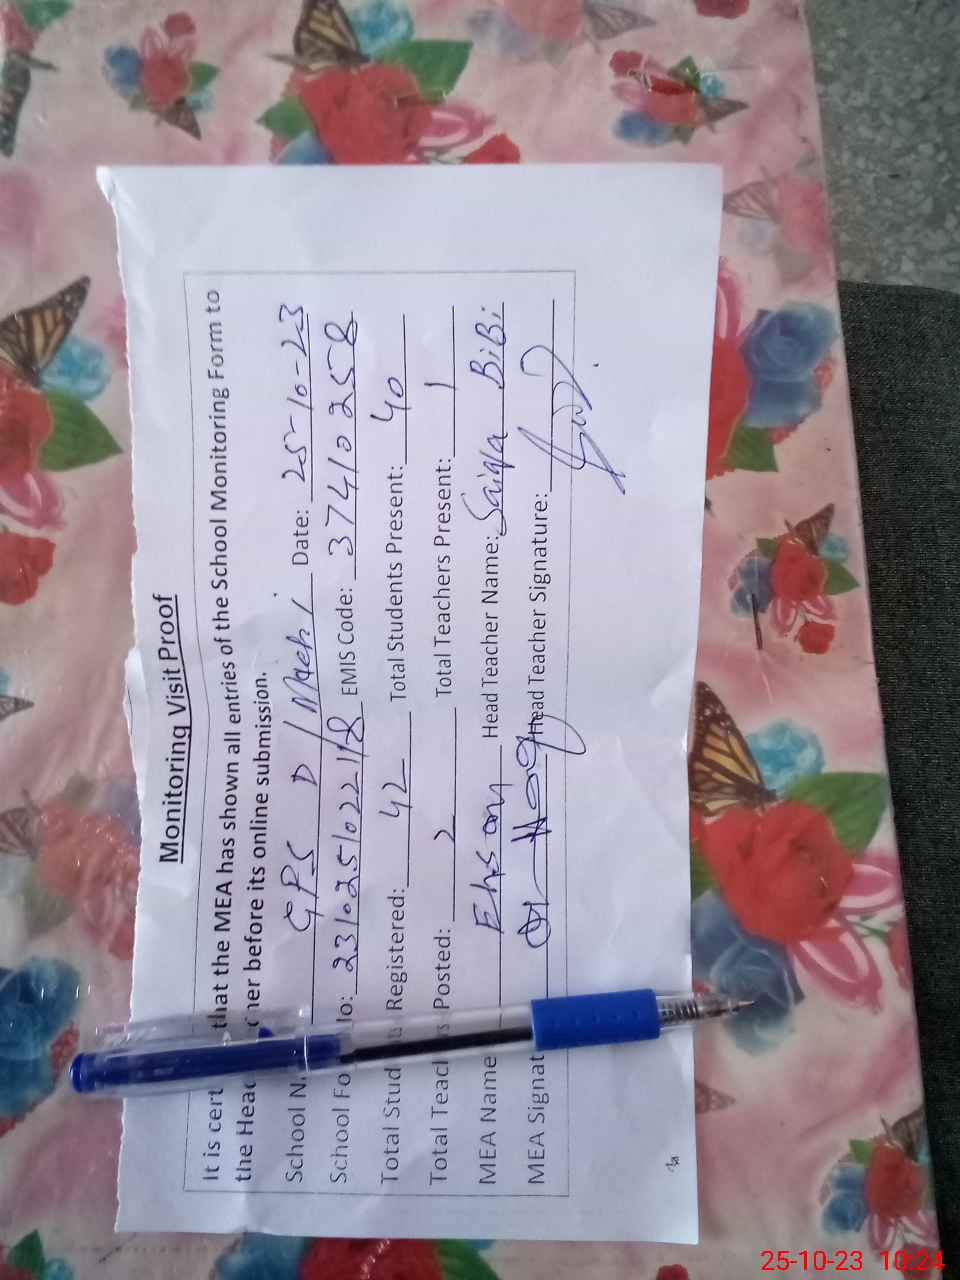 Monitoring Visit Proof
It is cert that the MEA has shown all entries of the School Monitoring Form to
the Head her before its online submission.
School N GPS D/Machi Date: 25-10-23
School Fo No: 2310251022118 EMIS Code: 37410258
Total Stud ts Registered: 42 Total Students Present: 40
Total Teach rs Posted: 2 Total Teachers Present: 1
MEA Name Ehsan Head Teacher Name: Saiqa BiBi
MEA Signat Head Teacher Signature:
25-10-23 10:24